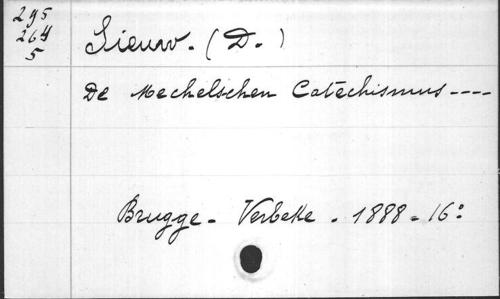 295
264
5
Lieuw. (D.)
De Mechelschen Catechismus ----
Brugge - Verbeke - 1888 - 16°